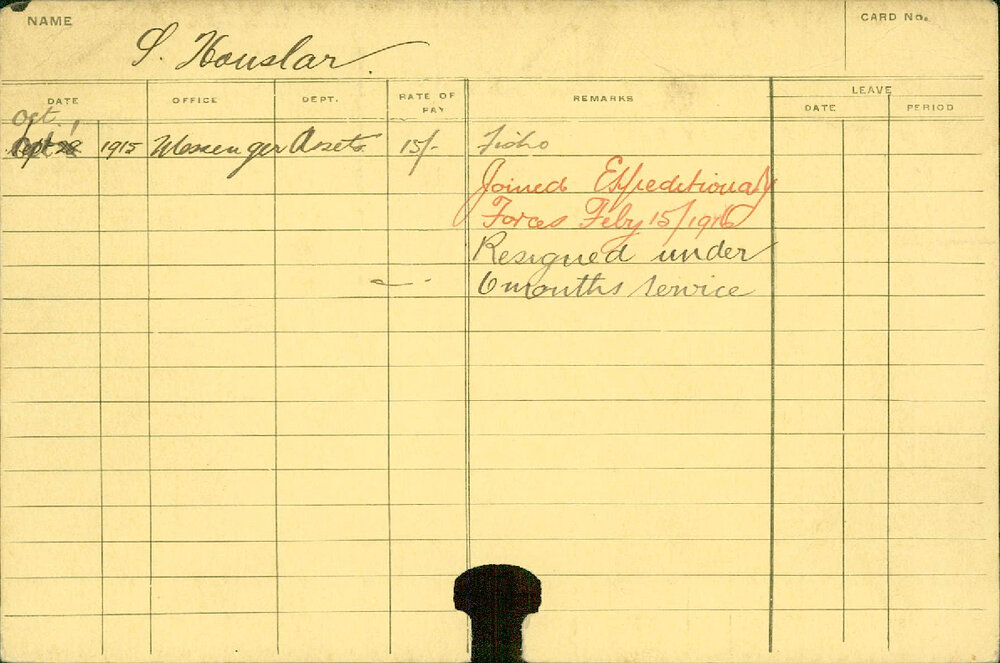 NAME
CARD No.
S. Houslar.
DATE OFFICE DEPT. RATE OF PAY REMARKS LEAVE
DATE PERIOD
Oct. 1
Sept 28 1915 Messenger Assets 15/-
Joined Expeditionary
Forces Feby 15/1916
Resigned under
6 months service